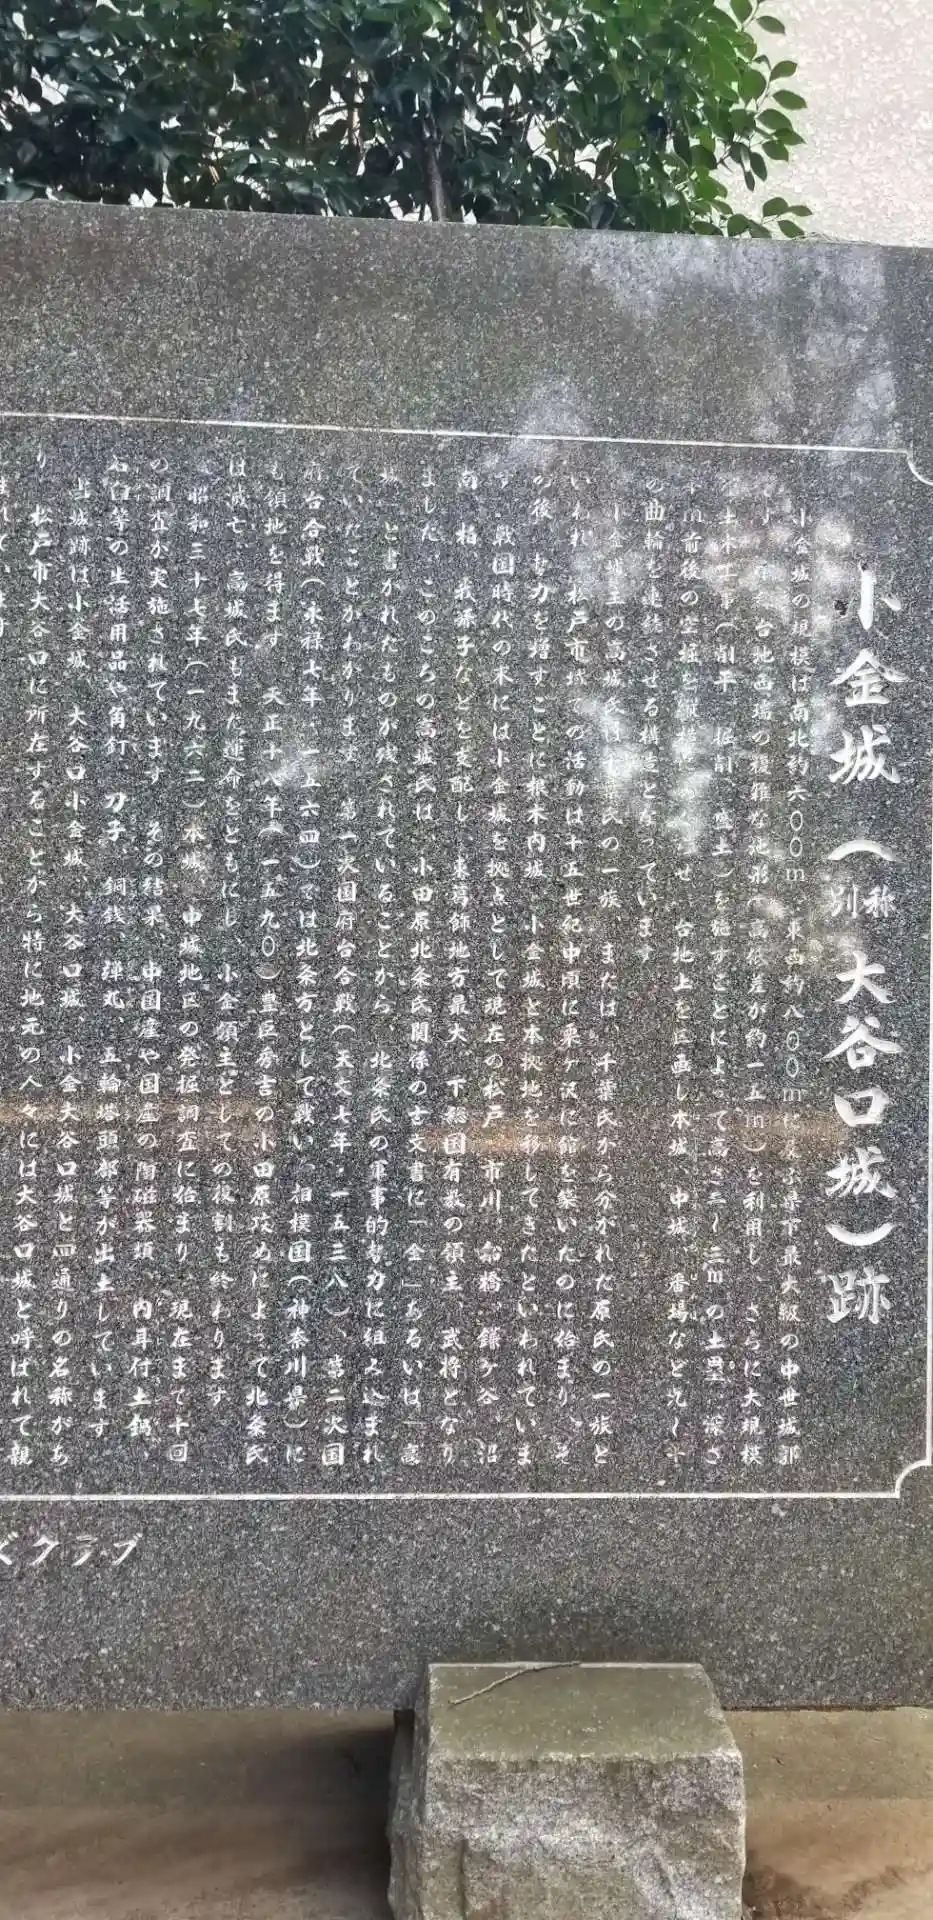 小金城(別称 大谷口城)跡
小金城の規模は南北約六〇〇m、東西約八〇〇mに及ぶ県下最大級の中世城郭
台地西端の複雑な地形(高低差が約一五m)を利用し、さらに大規模
土木工事(削平、掘削、盛土)を施すことによって高さ二〜三mの土塁、深さ
m前後の空堀を縦横 せ、台地上を区画し本城、中城、番場など九〜十
の曲輪を連結させる構造となっています。
小金城主の高城氏は千葉氏の一族、または、千葉氏から分かれた原氏の一族と
いわれ、松戸市域での活動は十五世紀中頃に栗ヶ沢に館を築いたのに始まり、そ
の後、勢力を増すごとに根木内城、小金城と本拠地を移してきたといわれていま
す。戦国時代の末には小金城を拠点として現在の松戸、市川、船橋、鎌ケ谷、沼
南、柏、我孫子などを支配し、東葛飾地方最大、下総国有数の領主、武将となり
ました。このころの高城氏は、小田原北条氏関係の古文書に「金」あるいは「高
城」と書かれたものが残されていることから、北条氏の軍事的勢力に組み込まれ
ていたことがわかります。第一次国府台合戦(天文七年・一五三八)、第二次国
府台合戦(永禄七年・一五六四)では北条方として戦い、相模国(神奈川県)に
も領地を得ます。天正十八年(一五九〇)豊臣秀吉の小田原攻めによって北条氏
は滅亡、高城氏もまた運命をともにし、小金領主としての役割も終わります。
昭和三十七年(一九六二)本城、中城地区の発掘調査に始まり、現在まで十回
の調査が実施されています。その結果、中国産や国産の陶磁器類、内耳付土鍋、
石臼等の生活用品や角釘、刀子、銅銭、弾丸、五輪塔頭部等が出土しています。
当城跡は小金城、大谷口小金城、大谷口城、小金大谷口城と四通りの名称があ
り、松戸市大谷口に所在することから特に地元の人々には大谷口城と呼ばれて親
しまれています。
ズクラブ